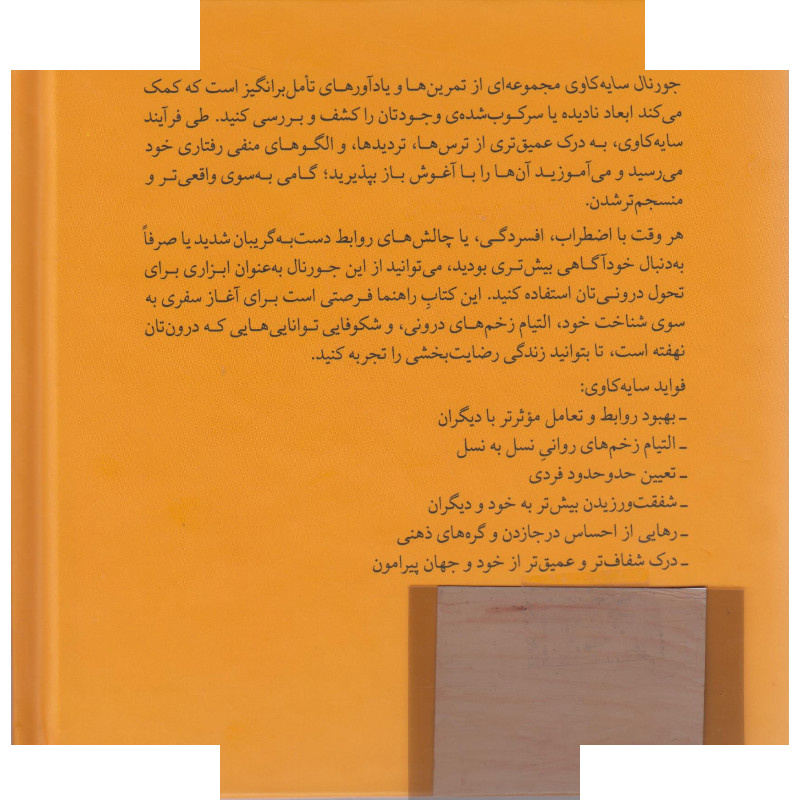 جورنال سایه‌کاوی مجموعه‌ای از تمرین‌ها و یادآورهای تأمل‌برانگیز است که کمک
می‌کند ابعاد نادیده یا سرکوب‌شده‌ی وجودتان را کشف و بررسی کنید. طی فرآیند
سایه‌کاوی، به درک عمیق‌تری از ترس‌ها، تردیدها، و الگوهای منفی رفتاری خود
می‌رسید و می‌آموزید آن‌ها را با آغوش باز بپذیرید؛ گامی به‌سوی واقعی‌تر و
منسجم‌ترشدن.
هر وقت با اضطراب، افسردگی، یا چالش‌های روابط دست‌به‌گریبان شدید یا صرفاً
به‌دنبال خودآگاهی بیش‌تری بودید، می‌توانید از این جورنال به‌عنوان ابزاری برای
تحول درونی‌تان استفاده کنید. این کتابِ راهنما فرصتی است برای آغاز سفری به
سوی شناخت خود، التیام زخم‌های درونی، و شکوفایی توانایی‌هایی که درون‌تان
نهفته است، تا بتوانید زندگی رضایت‌بخشی را تجربه کنید.
فواید سایه‌کاوی:
ـ بهبود روابط و تعامل مؤثرتر با دیگران
ـ التیام زخم‌های روانیِ نسل به نسل
ـ تعیین حدوحدود فردی
ـ شفقت‌ورزیدن بیش‌تر به خود و دیگران
ـ رهایی از احساس درجازدن و گره‌های ذهنی
ـ درک شفاف‌تر و عمیق‌تر از خود و جهان پیرامون